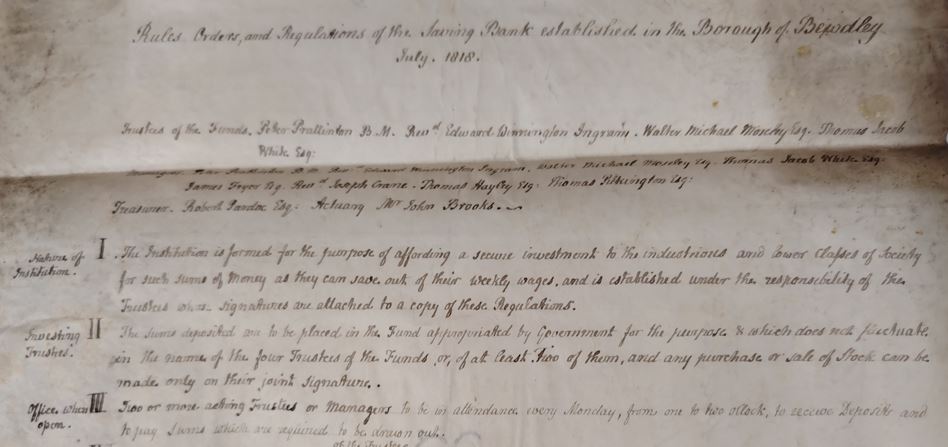 Rules Orders, and Regulations of the Saving Bank established in the Borough of Bewdley
July. 1818.
Trustees of the Funds. Peter Prattinton B.M. Revd Edward Winnington Ingram. Walter Michael Moseley Esq. Thomas Jacob
White Esq:
Peter Prattinton B.M. Revd Edward Winnington Ingram, Walter Michael Moseley Esq. Thomas Jacob White Esq.
James Fryer Esq. Revd Joseph Crane. Thomas Hayley Esq: Thomas Pilkington Esq:
Treasurer. Robert Pardoe Esq: Actuary Mr John Brooks.
Nature of Institution. I. The Institution is formed for the purpose of affording a secure investment to the industrious and lower Classes of Society
for such sums of Money as they can save out of their weekly wages, and is established under the responsibility of the
Trustees whose signatures are attached to a copy of these Regulations.
Investing Trustees. II The sums deposited are to be placed in the Fund appropriated by Government for the purpose & which does not fluctuate
in the name of the four Trustees of the Funds, or, of at least Two of them, and any purchase or sale of Stock can be
made only on their joint signature.
Office when open. III Two or more acting Trustees or Managers to be in attendance every Monday, from one to two oClock, to receive Deposits and
to pay Sums which are required to be drawn out.